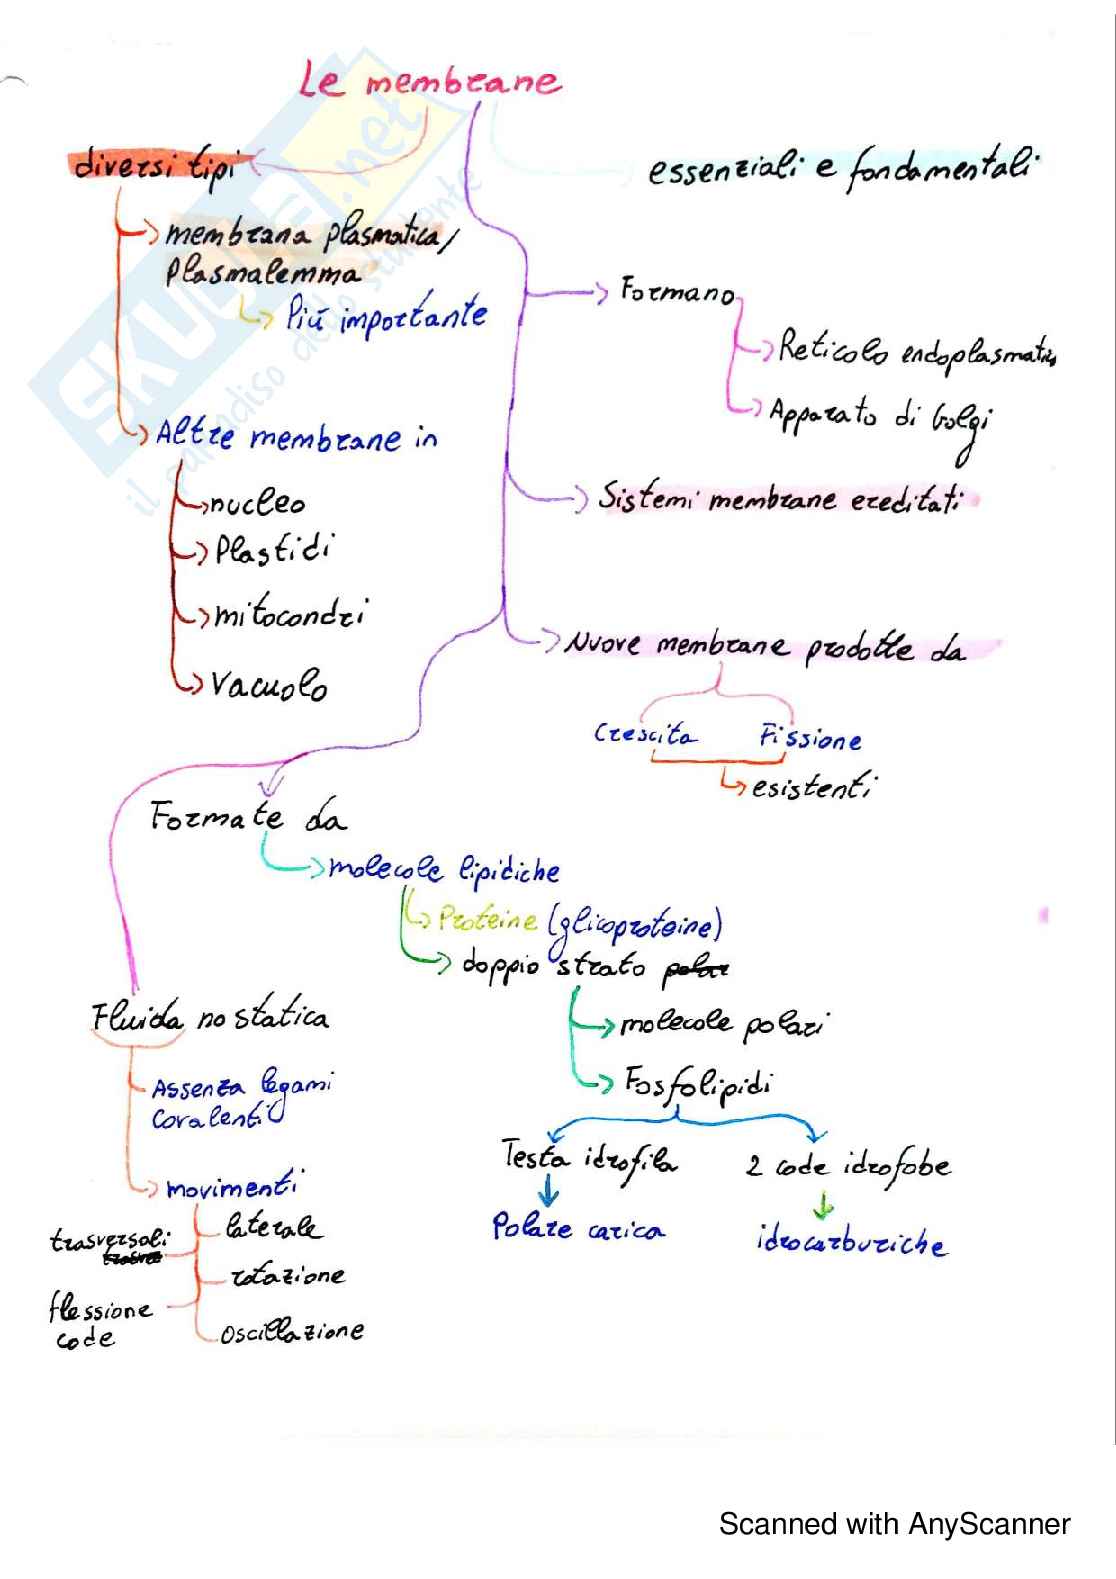 Le membrane
diversi tipi
essenziali e fondamentali
membrana plasmatica/
plasmalemma
Più importante
Formano
Reticolo endoplasmatico
Apparato di Golgi
Altre membrane in
nucleo
Plastidi
mitocondri
Vacuolo
Sistemi membrane ereditati
Nuove membrane prodotte da
Crescita Fissione
esistenti
Formate da
molecole lipidiche
Proteine (glicoproteine)
doppio strato polar
molecole polari
Fosfolipidi
Testa idrofila
2 code idrofobe
Polare carica
idrocarburiche
Fluida no statica
Assenza legami
covalenti
movimenti
laterale
trasversali
rotazione
flessione
code
oscillazione
SKUOLA.net
il paradiso dello studente
Scanned with AnyScanner